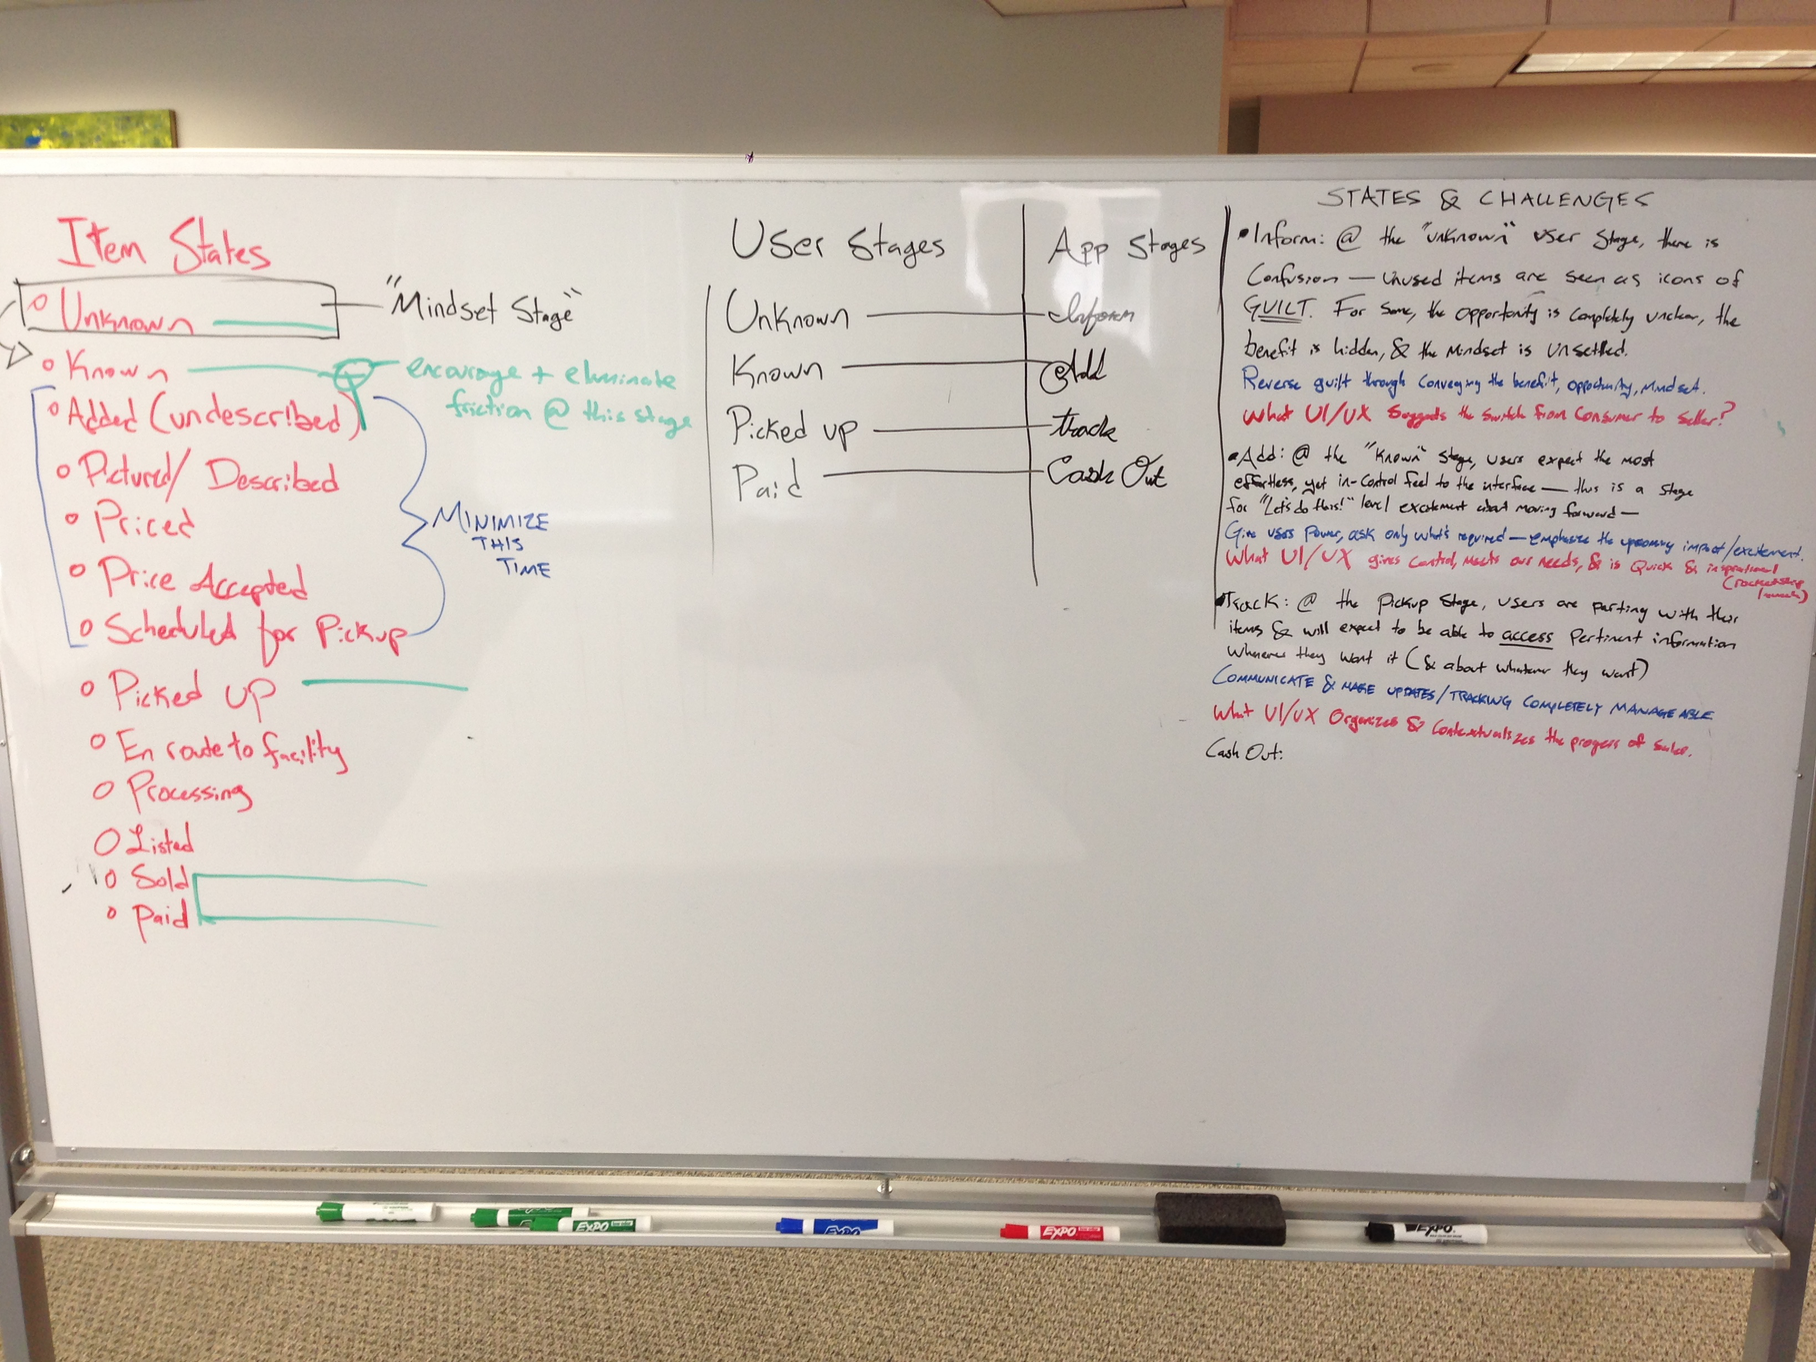 Item States
Unknown
"Mindset Stage"
Known
encourage + eliminate
friction @ this stage
Added (undescribed)
Pictured/ Described
Priced
Price Accepted
Scheduled for Pickup
MINIMIZE
THIS
TIME
Picked up
En route to facility
Processing
Listed
Sold
Paid
User Stages
Unknown
Known
Picked up
Paid
App Stages
Inform
Add
track
Cash Out
STATES & CHALLENGES
Inform: @ the "unknown" user stage, there is
Confusion — Unused items are seen as icons of
GUILT. For some, the opportunity is completely unclear, the
benefit is hidden, & the Mindset is unsettled.
Reverse guilt through conveying the benefit, opportunity, mindset.
What UI/UX suggests the switch from consumer to seller?
Add: @ the "Known" stage, users expect the most
effortless, yet in-control feel to the interface — this is a stage
for "Let's do this!" level excitement about moving forward —
Give users Power, ask only what's required — emphasize the upcoming impact/excitement.
What UI/UX gives control, meets our needs, & is Quick & inspirational
Track: @ the Pickup Stage, users are parting with their
items & will expect to be able to access Pertinent information
whenever they want it (& about whatever they want)
COMMUNICATE & MAKE UPDATES/TRACKING COMPLETELY MANAGEABLE
What UI/UX Organizes & Contextualizes the progress of sales.
Cash Out:
EXPO
EXPO
EXPO
EXPO